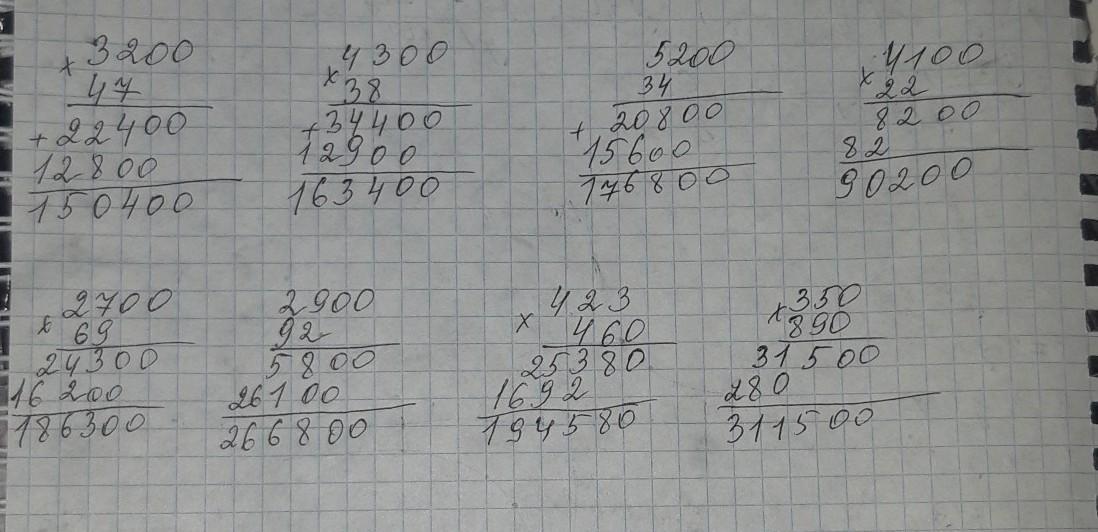 × 3200 × 4300 5200 × 4100
47 38 34 22
+ 22400 + 34400 + 20800 8200
12800 12900 15600 82
150400 163400 176800 90200
× 2700 2900 × 423 × 350
69 92 460 890
24300 5800 25380 31500
16200 26100 1692 280
186300 266800 194580 311500